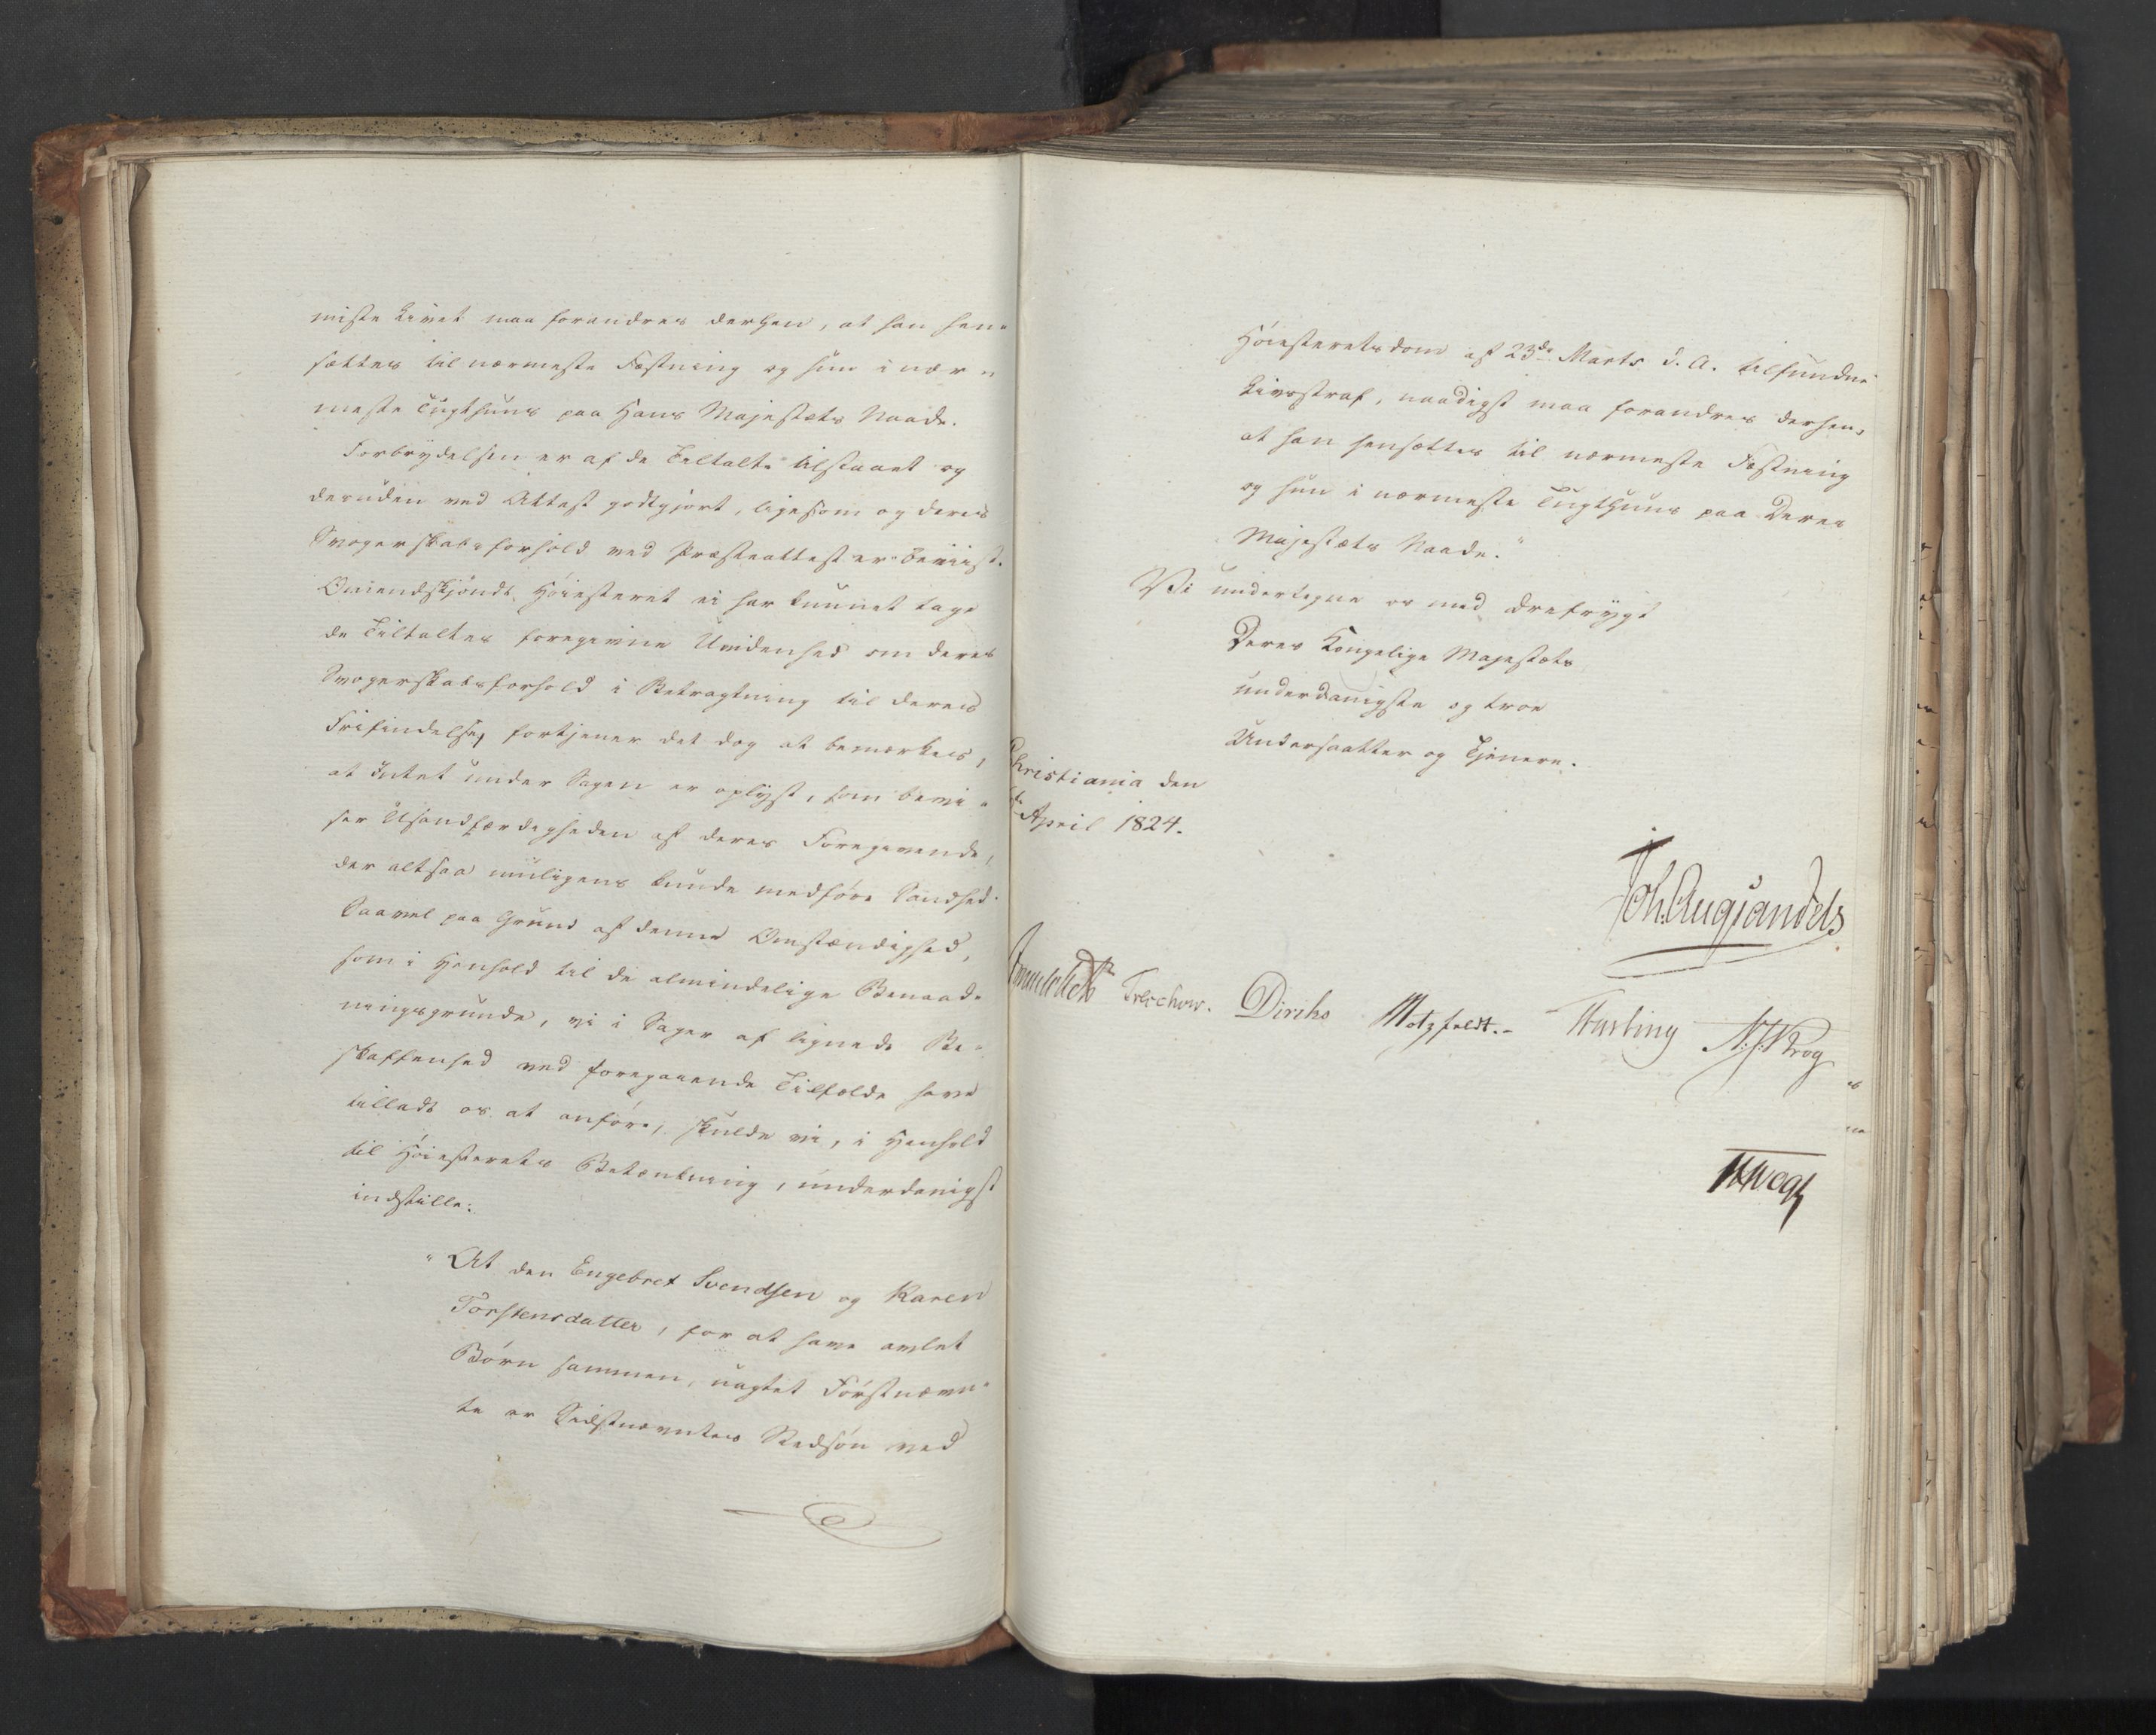 miste Livet maa forandres derhen, at han hen-
sættes til nærmeste Fæstning og hun i nær-
meste Tugthuus paa Hans Majestæts Naade.
Forbrydelsen er af de Tiltalte tilstaaet og
desuden ved Attest godtgjort, ligesom og deres
Svogerskabsforhold ved Præsteattest er beviist.
Omendskjöndt Höiesteret ei har kunnet tage
de Tiltaltes foregivne Uvidenhed om deres
Svogerskabsforhold i Betragtning til deres
Frifindelse, fortjener det dog at bemærkes,
at Intet under Sagen er oplyst, som bevi-
ser Usandfærdigheden af deres Foregivende,
der altsaa muligens kunde medföre Sandhed.
Saavel paa Grund af denne Omstændighed,
som i Henhold til de almindelige Benaad-
ningsgrunde, vi i Sager af lignede Be-
skaffenhed ved foregaaende Tilfælde have
tilladt os at anföre, skulde vi, i Henhold
til Höiesterets Betænkning, underdanigst
indstille:
"At den Engebret Svendsen og Karen
Torstensdatter, for at have avlet
Börn sammen, uagtet Förstnævn-
te er Sidstnævntes Stedsön ved
Höiesteretsdom af 23de Marts d. A. tilfundne
Livsstraf, naadigst maa forandres derhen,
at han hensættes til nærmeste Fæstning
og hun i nærmeste Tugthuus paa Deres
Majestæts Naade."
Vi undertegne os med Ærefrygt
Deres Kongelige Majestæts
underdanigste og troe
Undersaatter og Tjenere.
Christiania den
April 1824.
Joh. Aug. Sandels
Treschow. Diriks Motzfeldt.- N: J: Krog